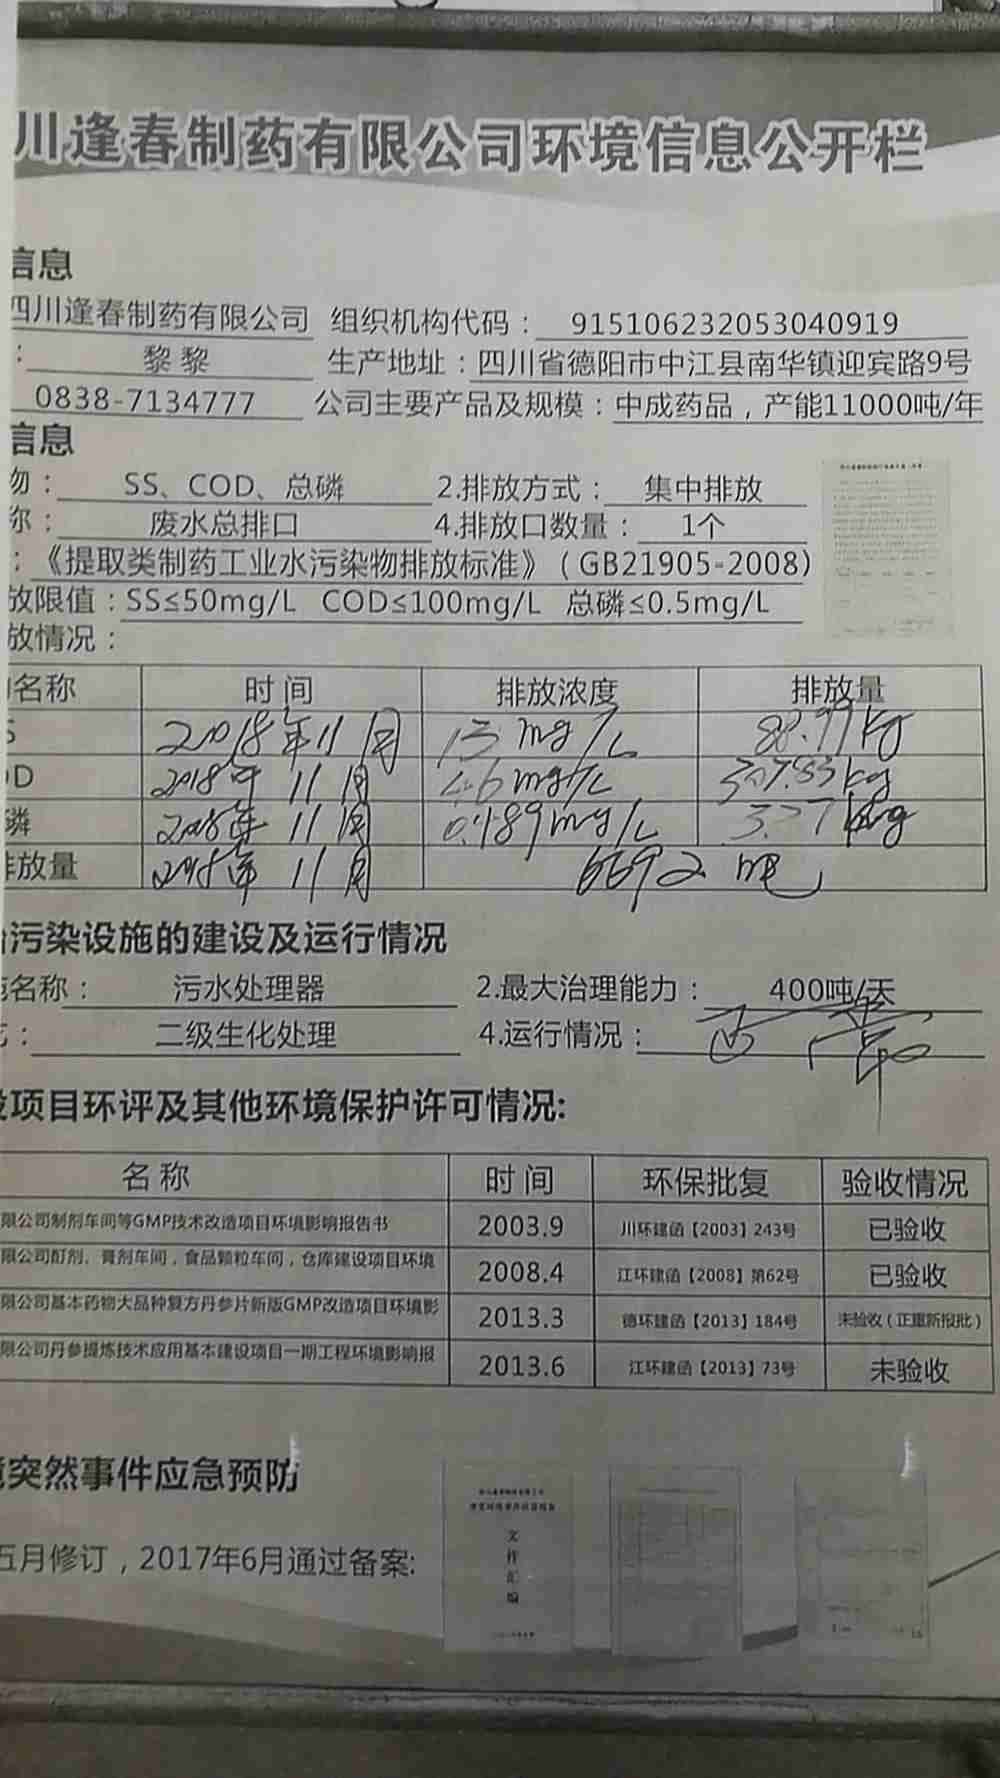 川逢春制药有限公司环境信息公开栏
信息
四川逢春制药有限公司 组织机构代码： 915106232053040919
： 黎黎 生产地址：四川省德阳市中江县南华镇迎宾路9号
0838-7134777 公司主要产品及规模：中成药品，产能11000吨/年
信息
物： SS、COD、总磷 2.排放方式： 集中排放
称： 废水总排口 4.排放口数量： 1个
：《提取类制药工业水污染物排放标准》（GB21905-2008）
放限值：SS≤50mg/L COD≤100mg/L 总磷≤0.5mg/L
放情况：
名称 时间 排放浓度 排放量
S 2018年11月 13mg/L 88.99kg
OD 2018年11月 46mg/L 307.83kg
磷 2018年11月 0.489mg/L 3.27kg
排放量 2018年11月 6692吨
污染设施的建设及运行情况
施名称： 污水处理器 2.最大治理能力： 400吨/天
艺： 二级生化处理 4.运行情况： 正常
设项目环评及其他环境保护许可情况:
名称 时间 环保批复 验收情况
限公司制剂车间等GMP技术改造项目环境影响报告书 2003.9 川环建函【2003】243号 已验收
限公司酊剂、膏剂车间，食品颗粒车间，仓库建设项目环境 2008.4 江环建函【2008】第62号 已验收
限公司基本药物大品种复方丹参片新版GMP改造项目环境影 2013.3 德环建函【2013】184号 未验收（正重新报批）
限公司丹参提炼技术应用基本建设项目一期工程环境影响报 2013.6 江环建函【2013】73号 未验收
境突然事件应急预防
五月修订，2017年6月通过备案:
文件汇编